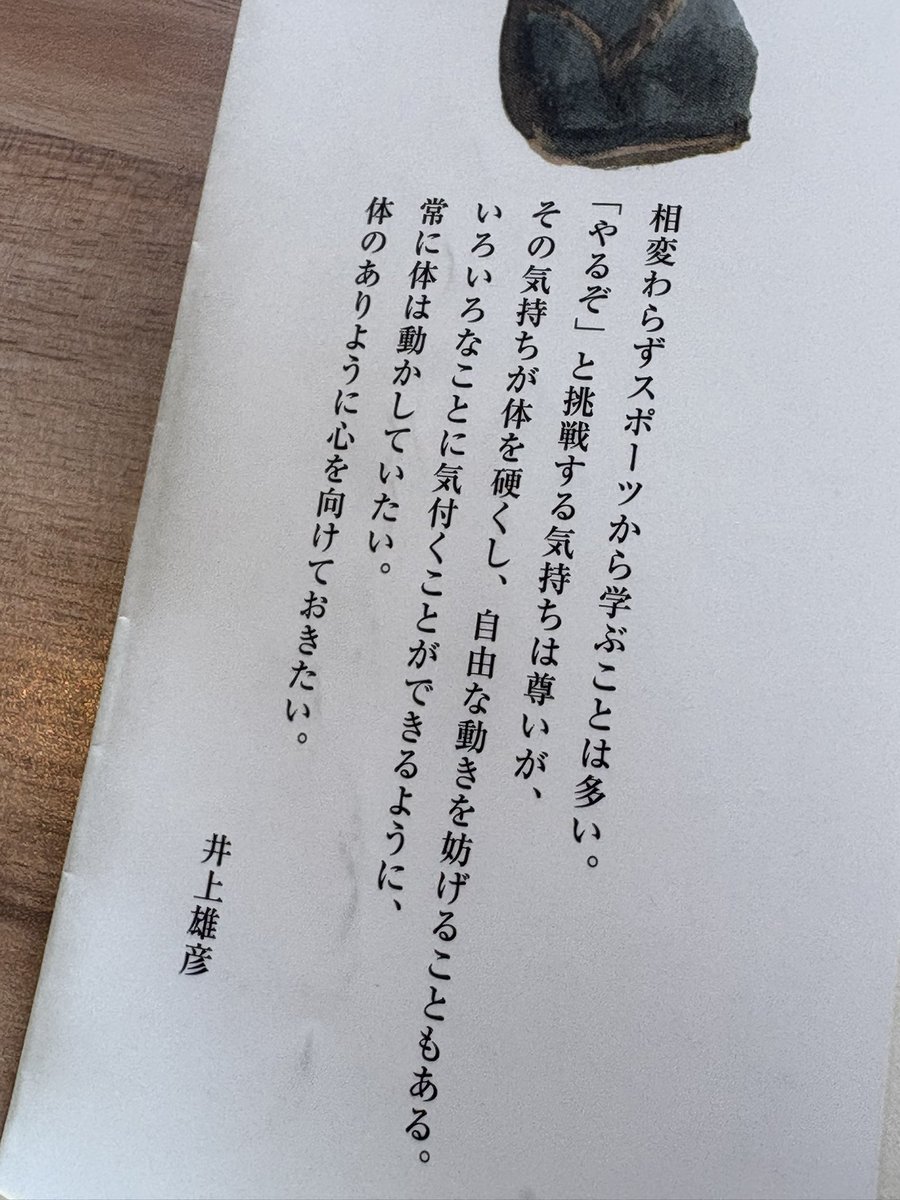 相変わらずスポーツから学ぶことは多い。
「やるぞ」と挑戦する気持ちは尊いが、
その気持ちが体を硬くし、自由な動きを妨げることもある。
いろいろなことに気付くことができるように、
常に体は動かしていたい。
体のありように心を向けておきたい。
井上雄彦